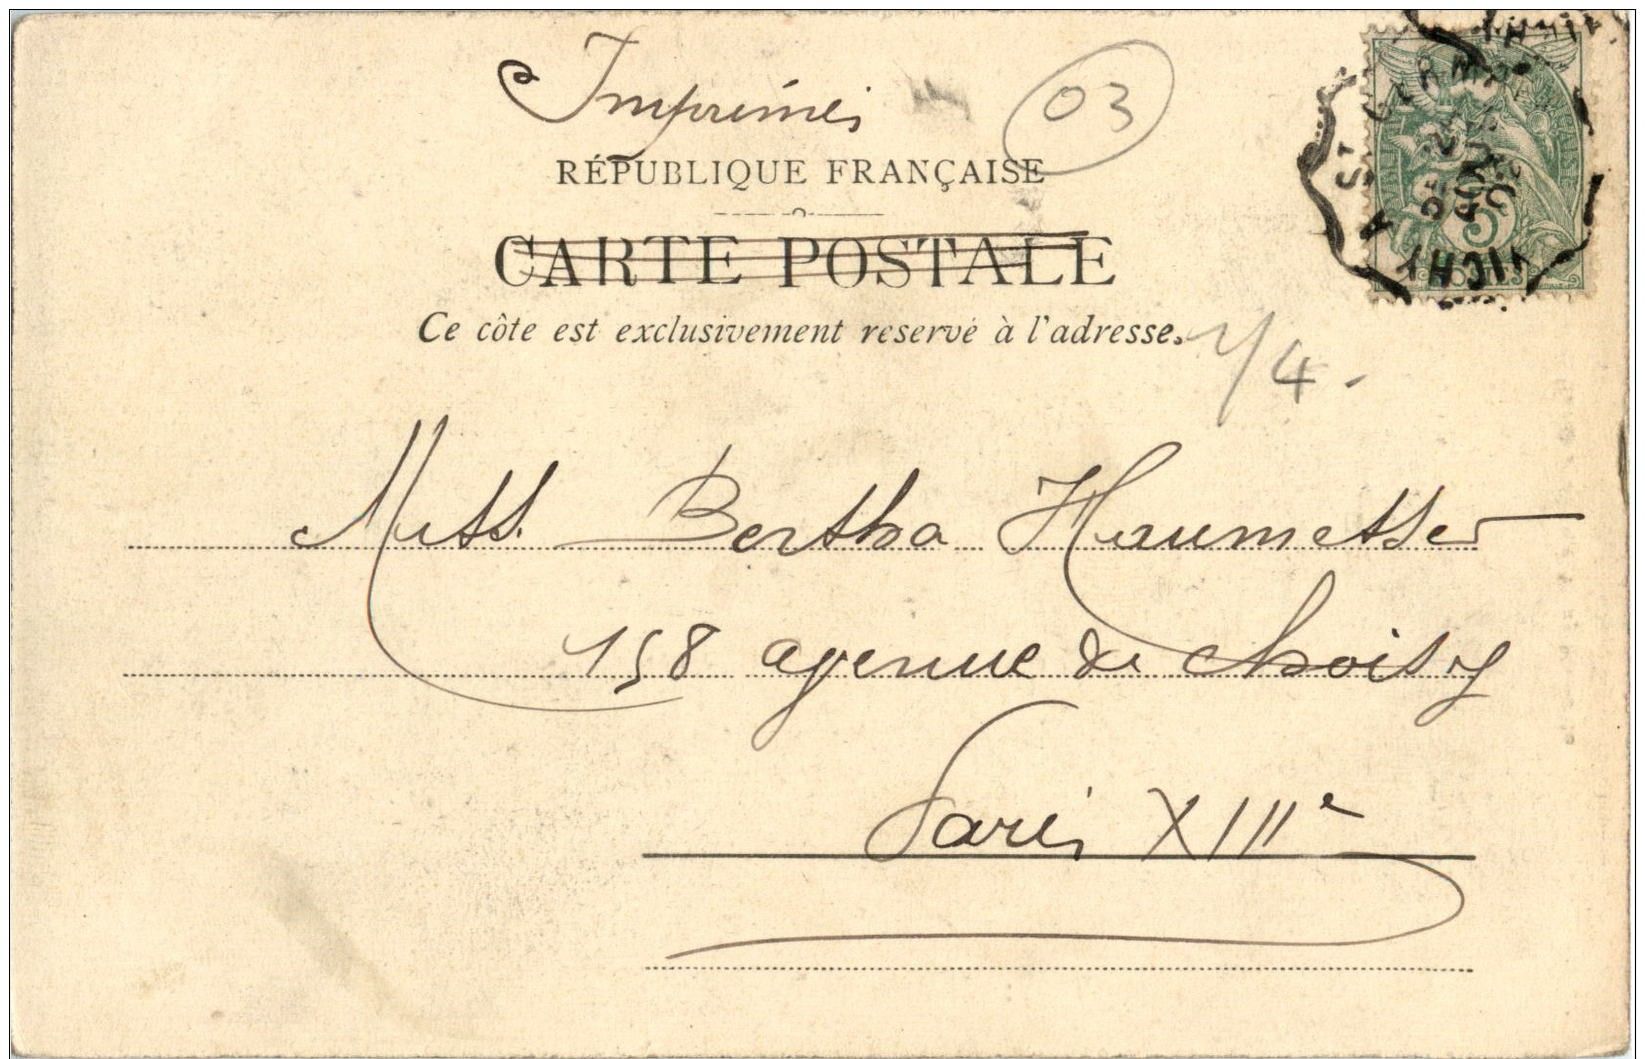 Imprimés
03
RÉPUBLIQUE FRANÇAISE
CARTE POSTALE
Ce côte est exclusivement reservé à l'adresse.
1/4.
Miss. Bertha Haumesser
158 avenue de Choisy
Paris XIIIe
ST GERMA
A VICHY
5
POSTES